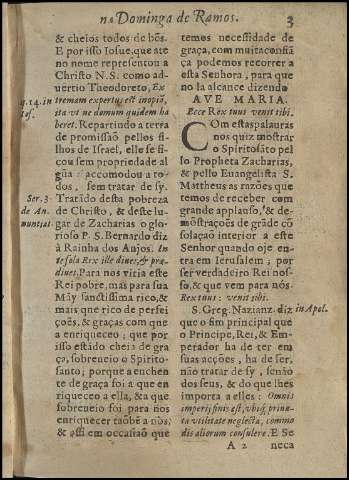 na Dominga de Ramos. 3
& cheios todos de bẽs.
E por isso Iosue, que ate
no nome representou a
Christo N.S. como ad-
uertio Theodoreto, Ex
q.14. in
Ios.
tremam expertus est inopiã,
ita vt ne domum quidem ha
beret. Repartindo a terra
de promissaõ pellos fi-
lhos de Israel, elle se fi-
cou sem propriedade al
gũa accomodou a to-
dos, sem tratar de sy.
Ser. 3.
de An.
nuntiat.
Tratãdo desta pobreza
de Christo, & deste lu-
gar de Zacharias o glo-
rioso P. S. Bernardo diz
à Rainha dos Anjos. In
te solo Rex ille diues, & præ-
diues. Para nos vitia este
Rei pobre, mas para sua
Mãy sanctissima rico, &
mais que rico de perfei
çoẽs, & graças com que
a enriqueceo; que por
isso estãdo cheia de gra
ça, sobreueio o Spirito-
santo; porque a enchen
te de graça foi a que en
riqueceo a ella, & a que
sobreueio foi para nos
enriquecer taõbẽ a nòs;
& assi em occasiaõ que
temos necessidade de
graça, com muita confiã
ça podemos recorrer a
esta Senhora, para que
no la alcance dizendo
AVE MARIA.
Ecce Rex tuus venit tibi.
COm estas palauras
nos quiz mostrar
o Spiritosãto pel
lo Propheta Zacharias,
& pello Euangelista S.
Mattheus as razões que
temos de receber com
grande applauso, & de-
mõstraçoẽs de grãde cõ
solaçaõ interior a este
Senhor quando oje en-
tra em Ierusalem; por
ser verdadeiro Rei nos-
so, & que vem para nòs.
Rex tuus: venit tibi.
S. Greg. Nazianz. diz
in Apol.
que o fim principal que
o Principe, Rei, & Em-
perador ha de ter em
suas acções, ha de ser,
naõ tratar de sy, senão
dos seus, & do que lhes
importa a elles: Omnis
imperij finis est, vbiq; priua-
ta vtilitate neglecta, commo
dis aliorum consulere. E Se
A 2 neca